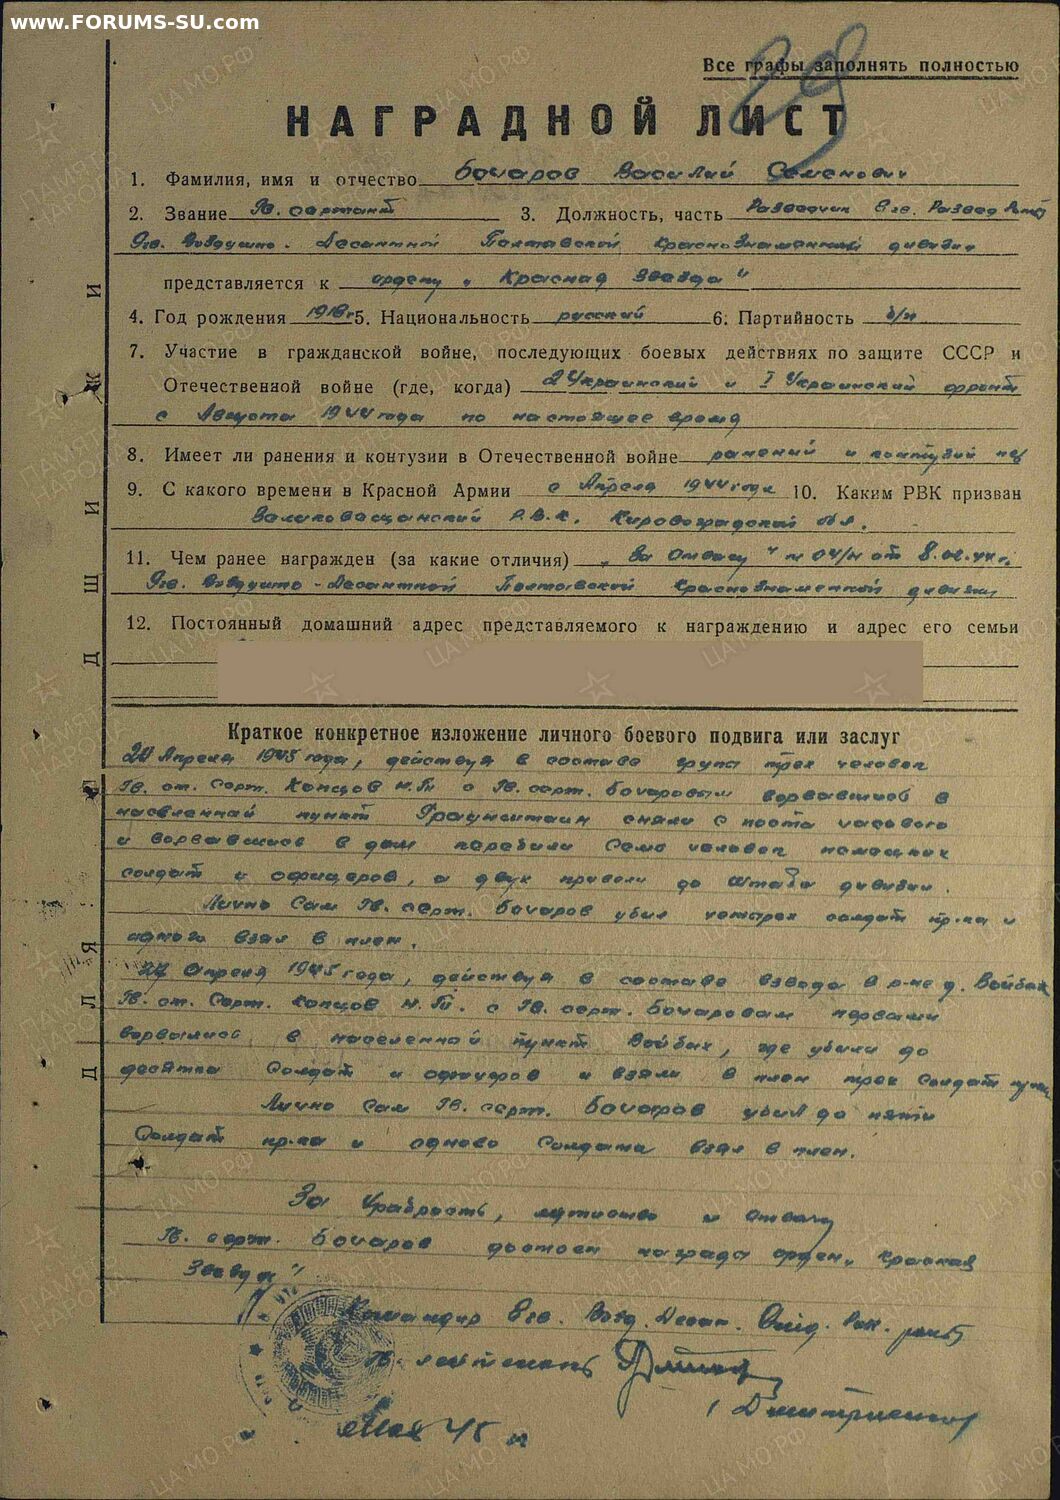 www.FORUMS-SU.com
29
Все графы заполнять полностью
НАГРАДНОЙ ЛИСТ
1. Фамилия, имя и отчество Бочаров Василий Семенович
2. Звание Гв. сержант 3. Должность, часть Разведчик 8 гв. Развед Роты
9гв. Воздушно-Десантной Полтавской Краснознаменной дивизии
представляется к ордену „Красная Звезда"
4. Год рождения 1918г 5. Национальность русский 6. Партийность б/п
7. Участие в гражданской войне, последующих боевых действиях по защите СССР и
Отечественной войне (где, когда) 2 Украинский и I Украинский фронт
с Августа 1944 года по настоящее время
8. Имеет ли ранения и контузии в Отечественной войне ранений и контузий
9. С какого времени в Красной Армии с Апреля 1944 года 10. Каким РВК призван
Р.В.К. Кировоградской обл.
11. Чем ранее награжден (за какие отличия) „За Отвагу" № 04/н от
9гв. Воздушно-Десантной Полтавской Краснознаменной дивизии
12. Постоянный домашний адрес представляемого к награждению и адрес его семьи
Краткое конкретное изложение личного боевого подвига или заслуг
Апреля 1945 года, действуя в составе група трех человек
Гв. ст. серж. Копцов Н.П. с Гв. серж. Бочаровым ворвавшись в
населенный пункт сняли с поста часового
и ворвавшись в дом перебили семь человек немецких
солдат и офицеров, а двух привели до штаба дивизии.
Лично сам Гв. серж. Бочаров убил четырех солдат пр-ка и
одного взял в плен.
27 апреля 1945 года, действуя в составе взвода в р-не д. Войбах
Гв. ст. Серж. Копцов Н.П. с Гв. серж. Бочаровам первыми
ворвались в населенной пункт Войбах, где убили до
десятка Солдат и офицеров и взяли в плен трех Солдат
Лично сам Гв. серж. Бочаров убил до пяти
Солдат пр-ка и одново Солдата взял в плен.
За храбрость, мужество и отвагу
Гв. серж. Бочаров достоен награда орден „Красная
Звезда"
Командир 8 гв. Возд. Десан. роты
Гв. лейтенант
Дмитриенко
мая 45 г
ДЛЯ ПОДШИВКИ
ЦА МО РФ
ПАМЯТЬ НАРОДА